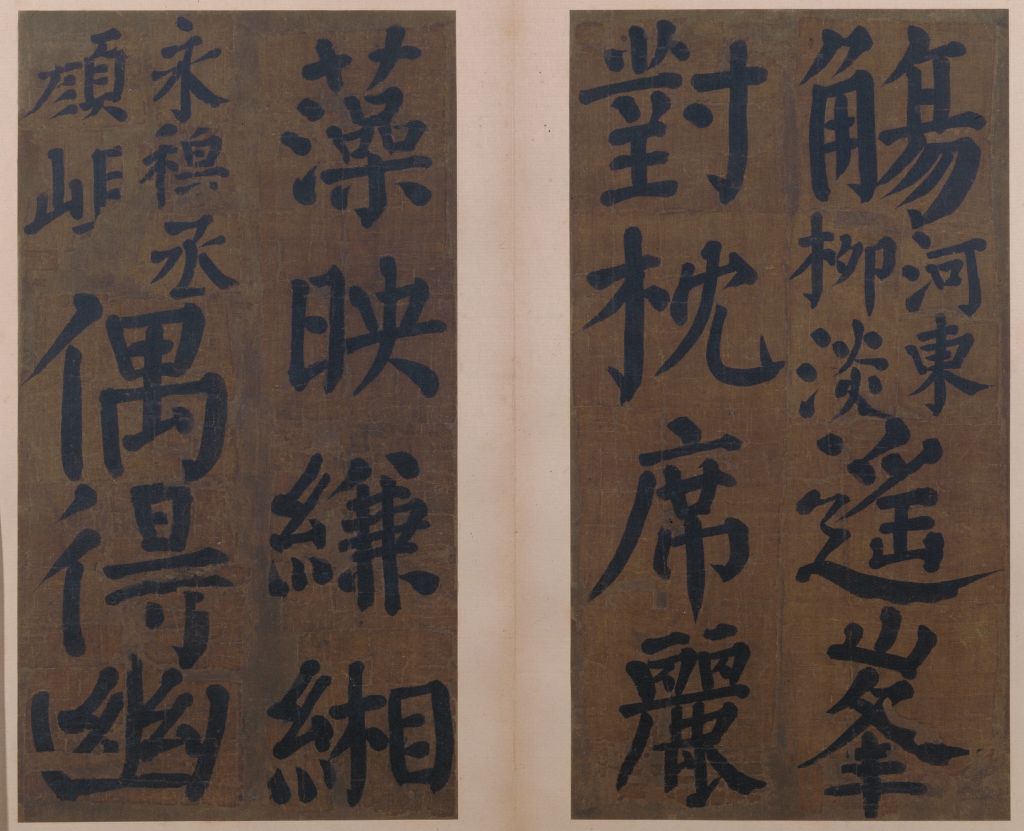 觴
河東
柳淡
遙峯
對枕席麗
藻映縑緗
永穆丞
顏
偶得幽